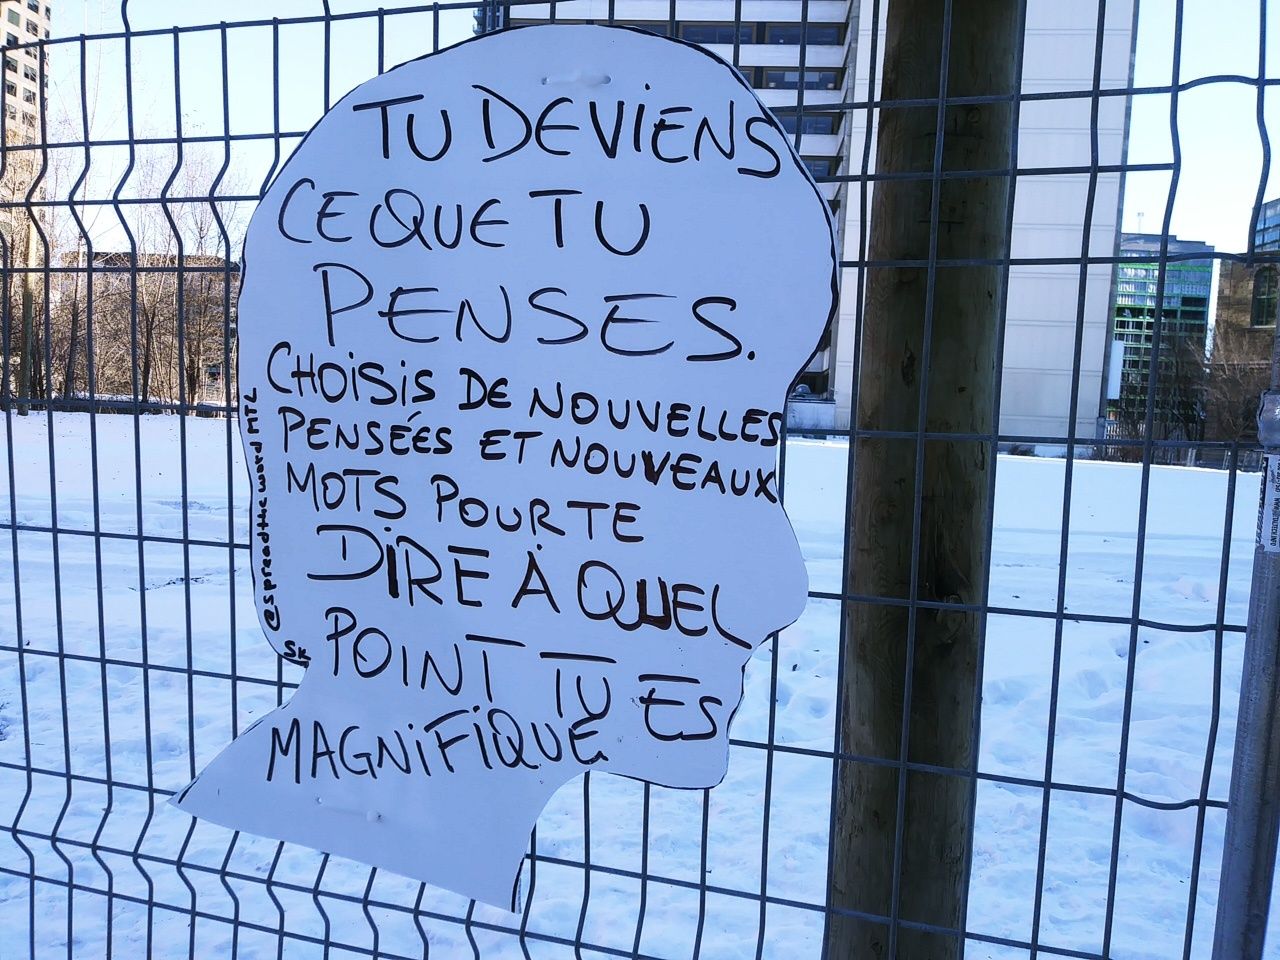 TU DEVIENS
CE QUE TU
PENSES.
CHOISIS DE NOUVELLES
PENSÉES ET NOUVEAUX
MOTS POUR TE
DIRE À QUEL
POINT TU ES
MAGNIFIQUE
@spreadthewordMTL
SK